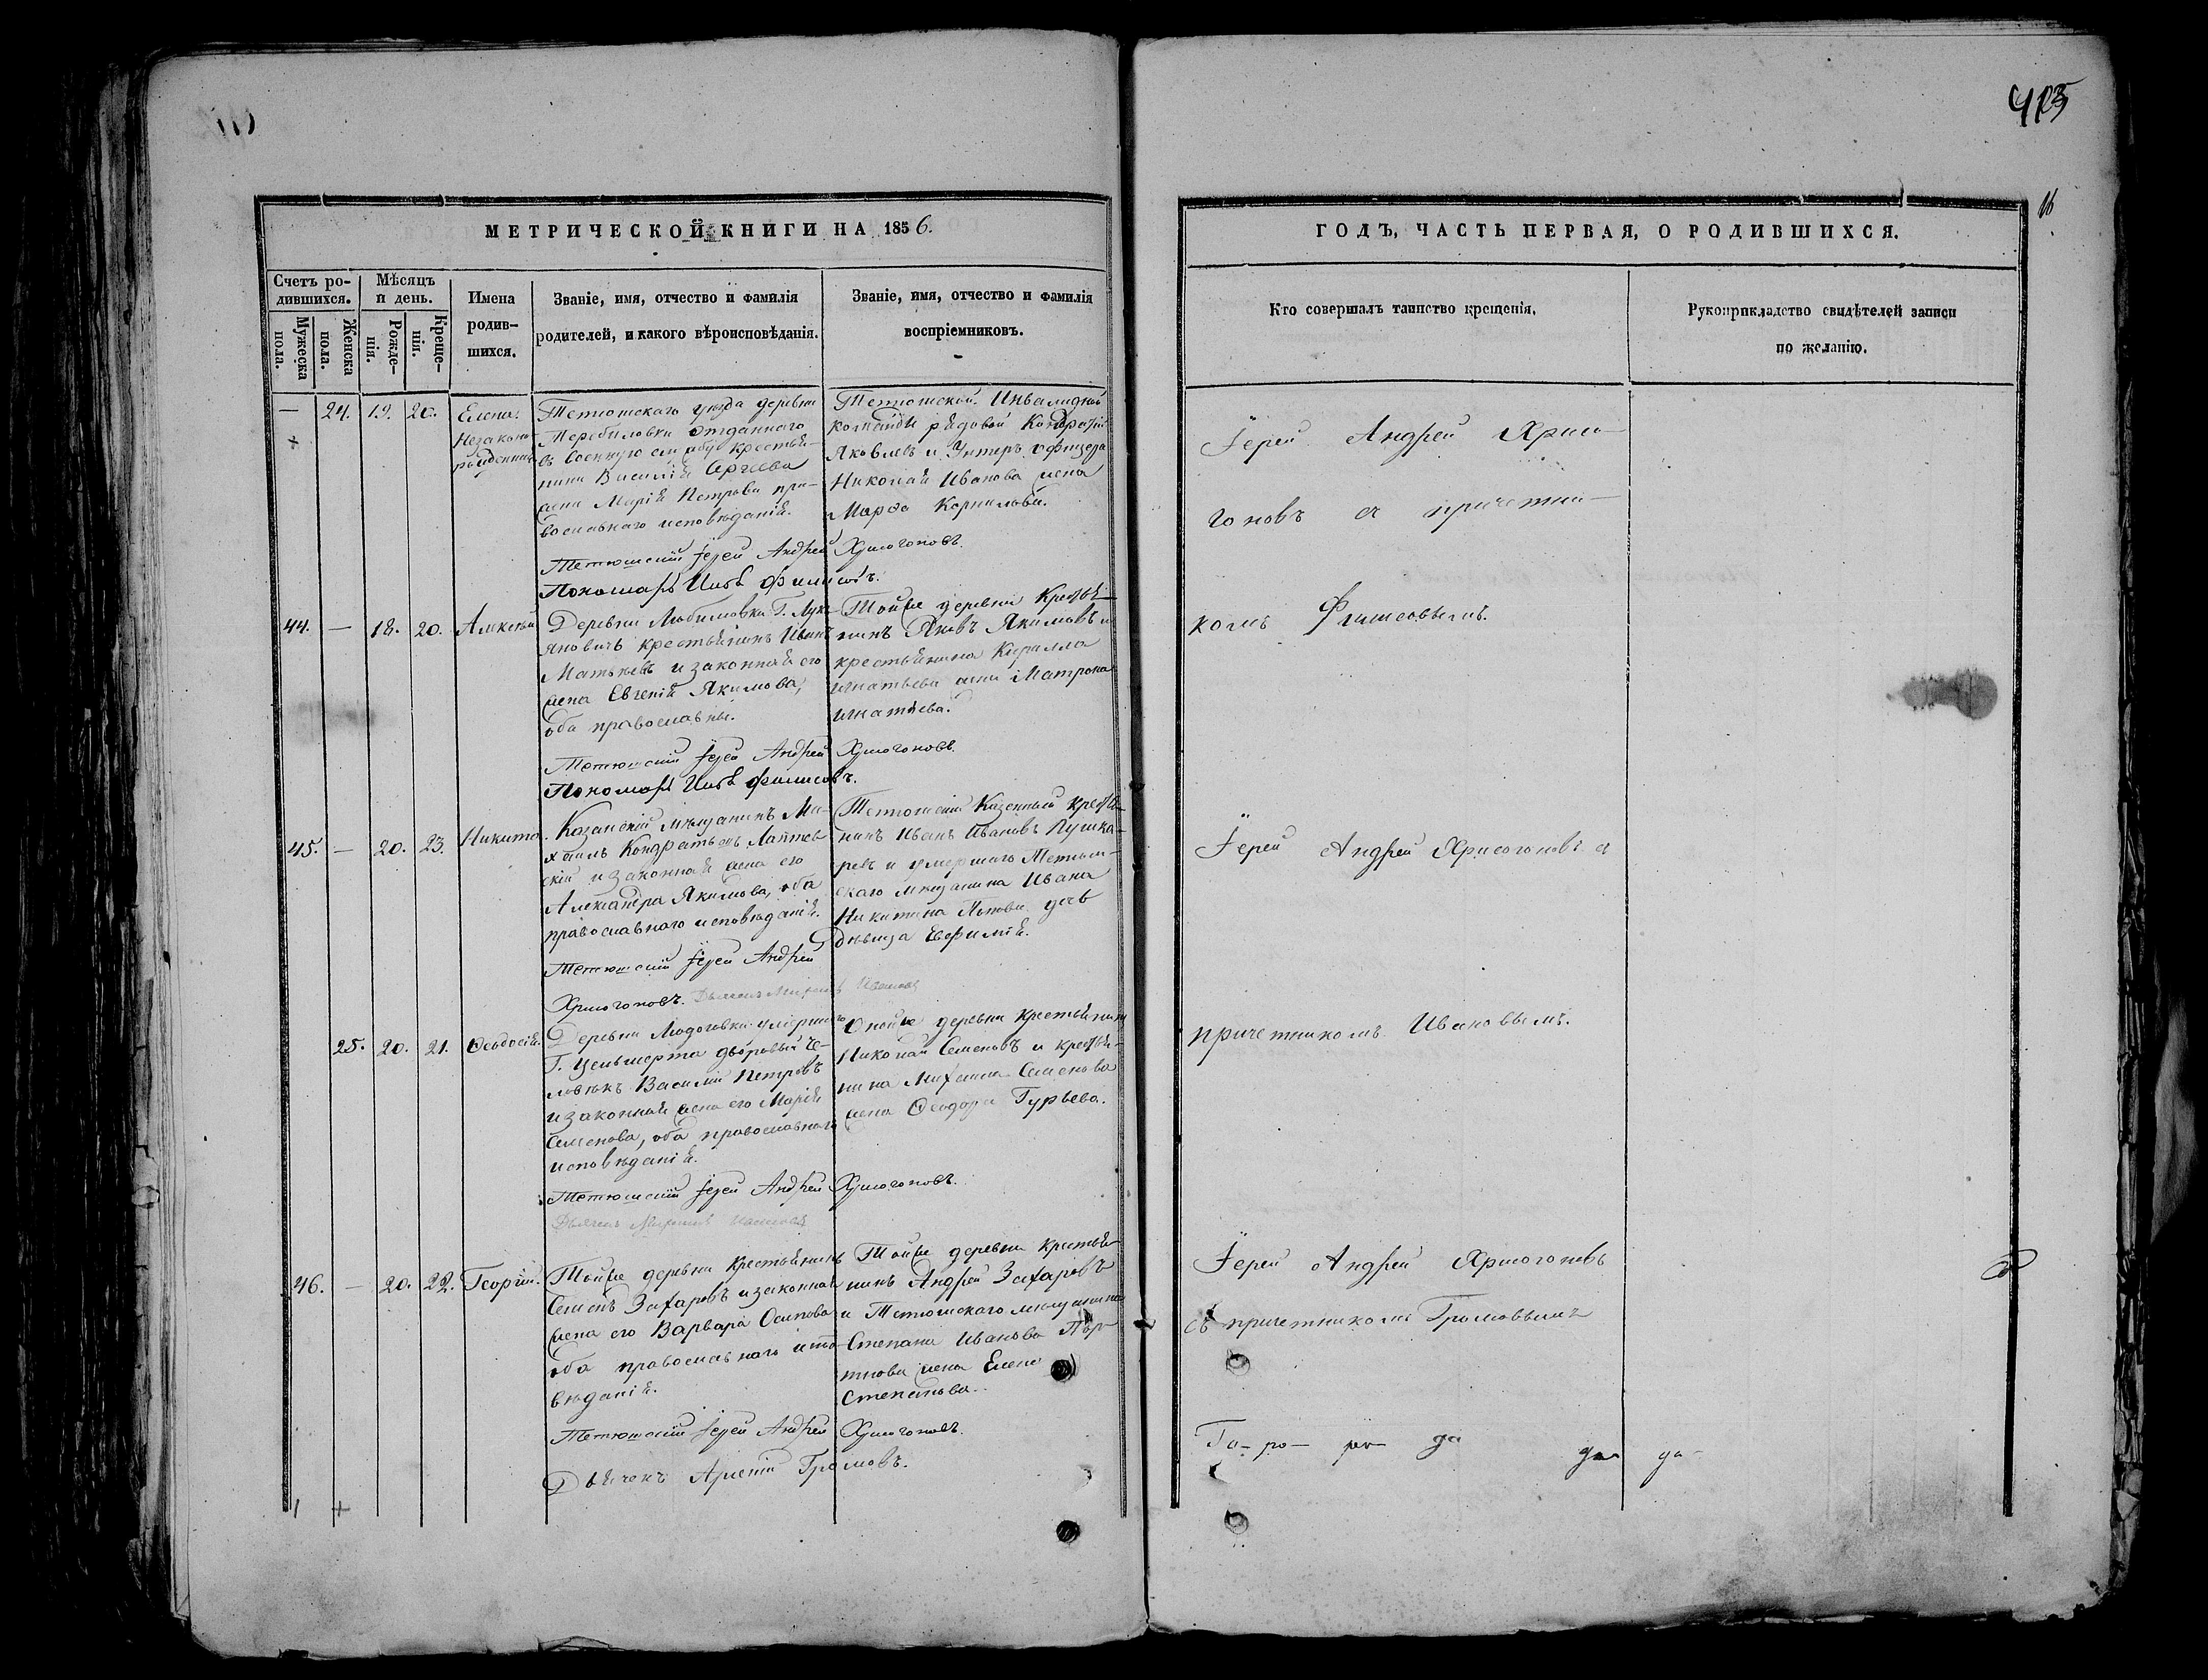 МЕТРИЧЕСКОЙ КНИГИ НА 1856.
Счетъ ро-
дившихся.
Мужеска
пола.
Женска
пола.
Мѣсяцъ
и день.
Рожде-
нія.
Креще-
нія.
Имена
родив-
шихся.
Званіе, имя, отчество и фамилія
родителей, и какого вѣроисповѣданія.
Званіе, имя, отчество и фамилія
воспріемниковъ.
— 24. 19. 20. Елена.
Незаконо
рожденная
Тетюшскаго уѣзда деревни
отданнаго
въ военную службу крестья-
нина Василія Сергѣева
жена Марія Петрова пра-
вославнаго исповѣданія.
Тетюшской Инвалидной
команды рядовой Кондратій
Яковлевъ и Унтеръ офицера
Николая Иванова жена
Марфа Корнилова.
Тетюшскій Іерей Андрей Хрисогоновъ.
Пономарь Филисовъ.
44. — 18. 20. Алексѣй
Деревни Любимовки Г. Лукь
яновичъ крестьянинъ Иванъ
Матвѣевъ и законная его
жена Евгенія Якимова,
оба православны.
Тойже деревни Крестья
нинъ Яковъ Якимовъ и
крестьянина Кирилла
Игнатьева жена Матрона
Игнатьева.
Тетюшскій Іерей Андрей Хрисогоновъ.
Пономарь Филисовъ.
45. — 20. 23. Никита.
Казанскій мѣщанинъ Ми-
хаилъ Кондратьевъ Лаптев
скій и законная жена его
Александра Якимова, оба
православнаго исповѣданія.
Тетюшскій Казенный крестья-
нинъ Иванъ Ивановъ Пушка-
ревъ и умершаго Тетюш-
скаго мѣщанина Ивана
Никитина Попова дочь
дѣвица Евфимія.
Тетюшскій Іерей Андрей
Хрисогоновъ. Дьячекъ Ивановъ
25. 20. 21. Ѳеодосія.
Деревни Людоговки умершаго
Г. Ценьмерта дворовый че-
ловѣкъ Василій Петровъ
и законная жена его Марія
Семенова, оба православнаго
исповѣданія.
Оной же деревни крестьянинъ
Николай Семеновъ и крестья-
нина Михаила Семенова
жена Ѳеодора Гурьева.
Тетюшскій Іерей Андрей Хрисогоновъ.
Дьячекъ Ивановъ
46. — 20. 22. Георгій.
Тойже деревни крестьянинъ
Семенъ Захаровъ и законная
жена его Варвара Осипова
оба православнаго испо-
вѣданія.
Тойже деревни крестья-
нинъ Андрей Захаровъ
и Тетюшскаго мѣщанина
Степана Иванова
жена Елена
Степанова.
Тетюшскій Іерей Андрей Хрисогоновъ.
Дьячекъ Арсеній Громовъ.
16
ГОДЪ, ЧАСТЬ ПЕРВАЯ, О РОДИВШИХСЯ.
Кто совершалъ таинство крещенія.
Рукоприкладство свидѣтелей записи
по желанію.
Іерей Андрей Хрисо-
гоновъ съ причетни-
комъ Филисовымъ.
Іерей Андрей Хрисогоновъ съ
причетникомъ Ивановымъ.
Іерей Андрей Хрисогоновъ
съ причетникомъ Громовымъ